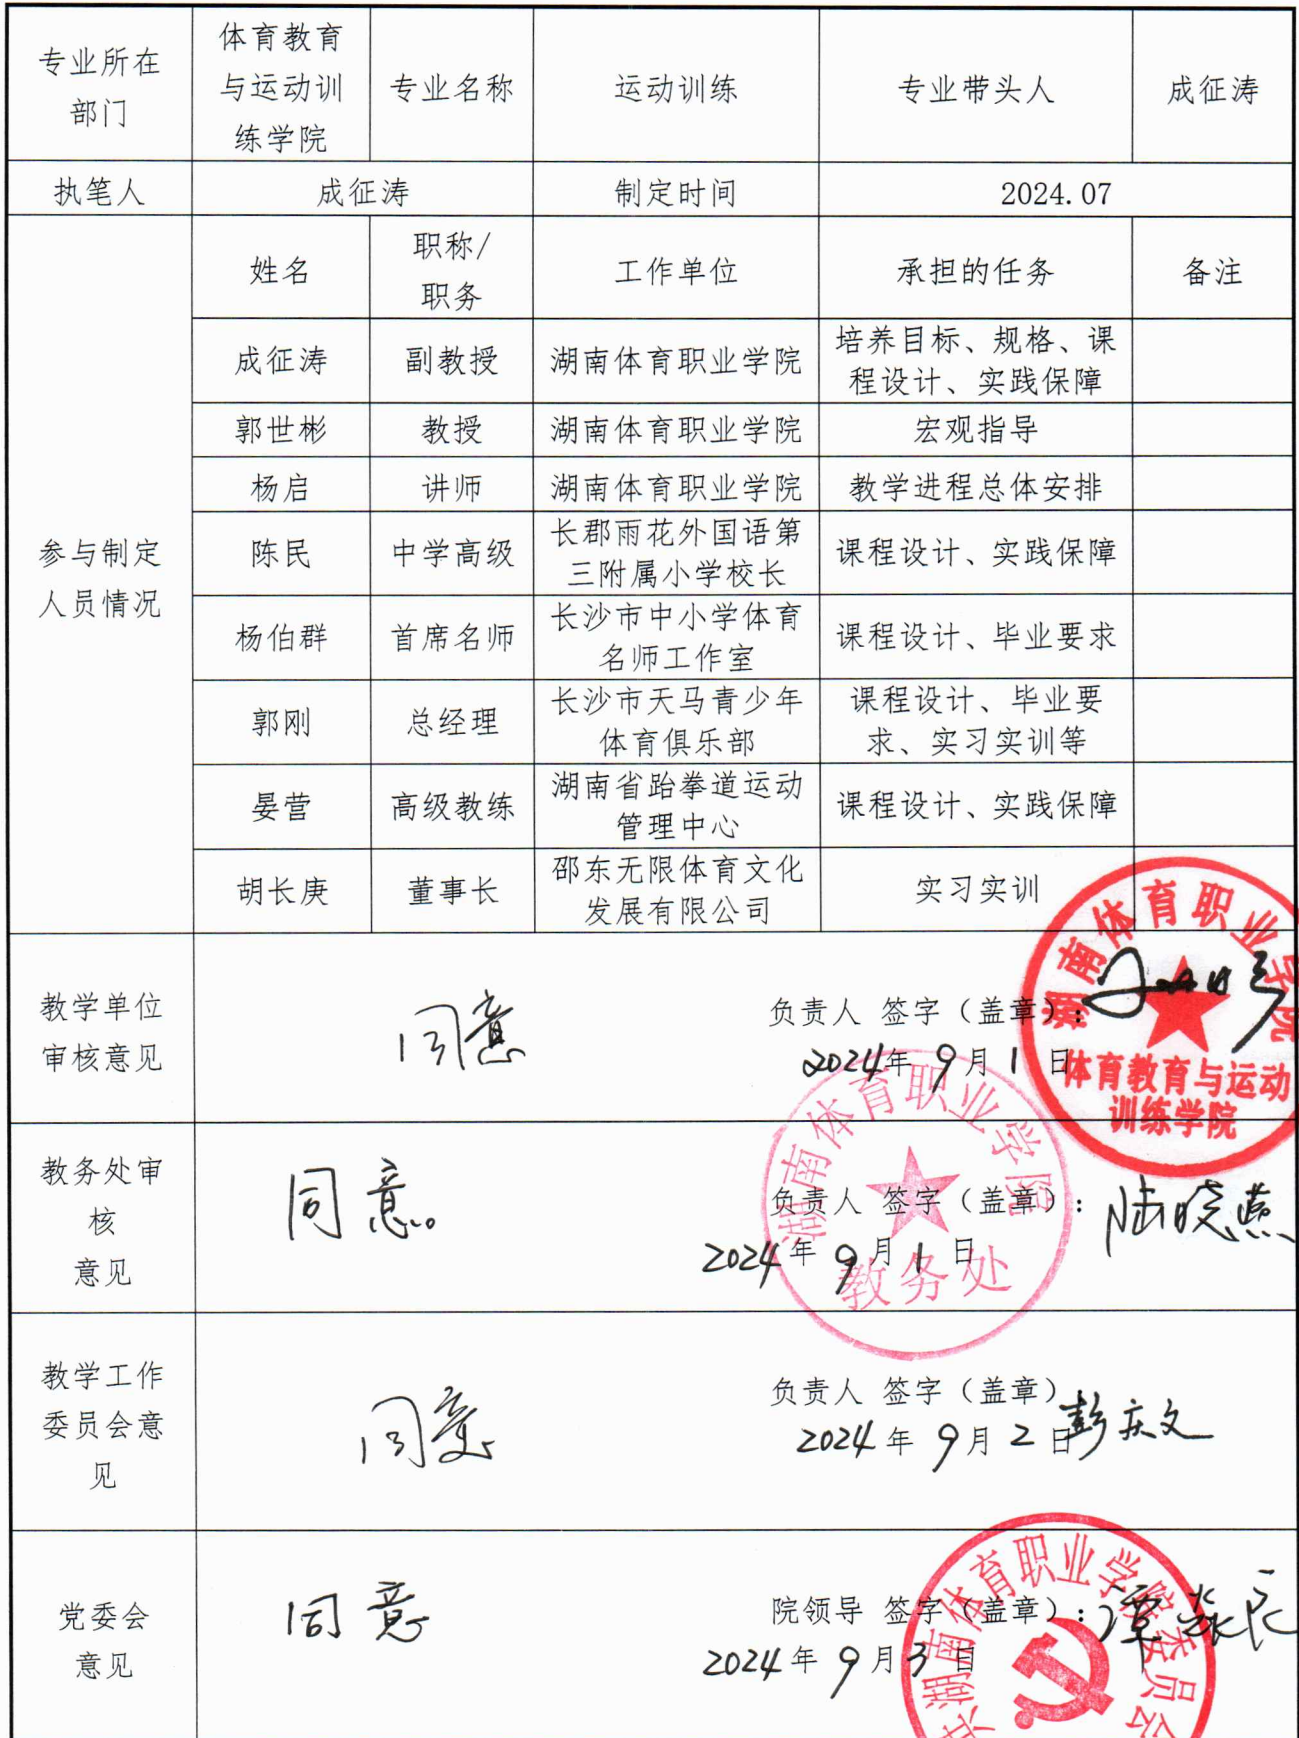 专业所在
部门
体育教育
与运动训
练学院
专业名称
运动训练
专业带头人
成征涛
执笔人
成征涛
制定时间
2024.07
参与制定
人员情况
姓名
职称/
职务
工作单位
承担的任务
备注
成征涛
副教授
湖南体育职业学院
培养目标、规格、课
程设计、实践保障
郭世彬
教授
湖南体育职业学院
宏观指导
杨启
讲师
湖南体育职业学院
教学进程总体安排
陈民
中学高级
长郡雨花外国语第
三附属小学校长
课程设计、实践保障
杨伯群
首席名师
长沙市中小学体育
名师工作室
课程设计、毕业要求
郭刚
总经理
长沙市天马青少年
体育俱乐部
课程设计、毕业要
求、实习实训等
晏营
高级教练
湖南省跆拳道运动
管理中心
课程设计、实践保障
胡长庚
董事长
邵东无限体育文化
发展有限公司
实习实训
教学单位
审核意见
同意
负责人 签字（盖章）：
2024年 9月 1 日
湖南体育职业学院
体育教育与运动
训练学院
教务处审
核
意见
同意。
负责人 签字（盖章）：
陆晓燕
2024年 9月 1 日
湖南体育职业学院
教务处
教学工作
委员会意
见
同意
负责人 签字（盖章）
彭庆文
2024年 9月 2 日
党委会
意见
同意
院领导 签字（盖章）：
2024年 9月 3 日
共湖南体育职业学院委员会